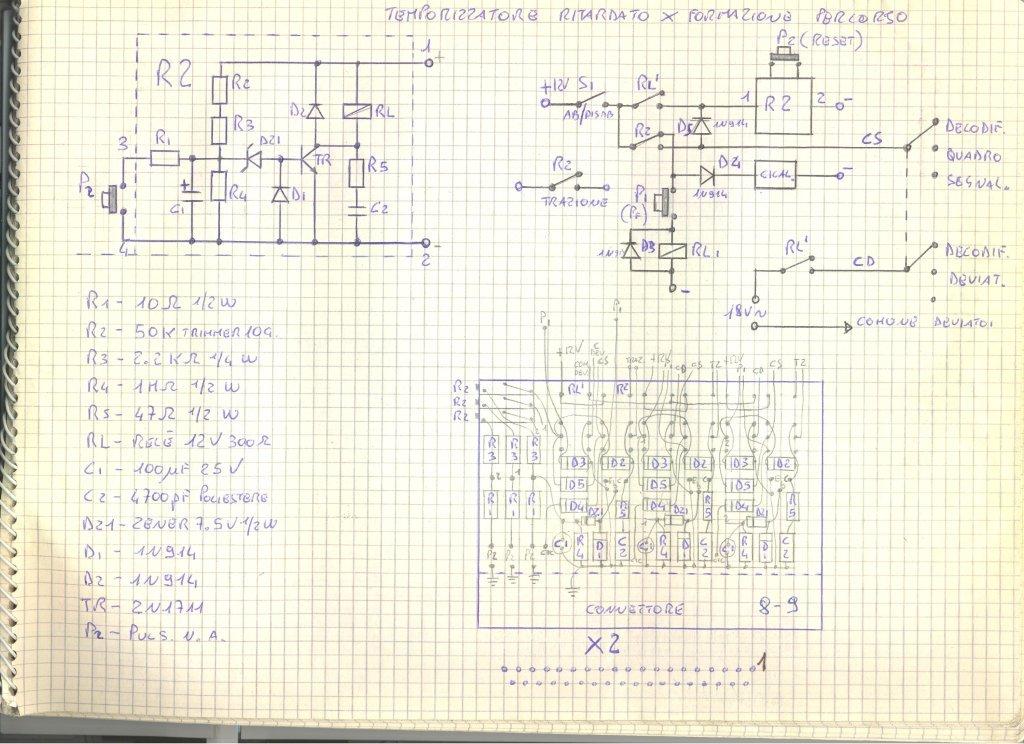 TEMPORIZZATORE RITARDATO X FORMAZIONE PERCORSO
R2
1
+
R2
R3
D2
RL
3
R1
DZ1
TR
R5
P2
+
C1
R4
D1
C2
4
-
2
P2 (RESET)
+12V
S1
AB/DISAB
RL'
1
R2
2
-
R2
D5
1N914
CS
DECODIF.
QUADRO
SEGNAL.
R2
TRAZIONE
D4
1N914
CICAL.
-
P1
D3
RL1
-
RL'
CD
DECODIF.
DEVIAT.
18V~
COMUNE DEVIATOI
R1 - 10Ω 1/2 W
R2 - 50K TRIMMER 10G.
R3 - 2.2KΩ 1/4 W
R4 - 1MΩ 1/2 W
R5 - 47Ω 1/2 W
RL - RELÈ 12V 300Ω
C1 - 100µF 25V
C2 - 4700pF POLIESTERE
DZ1 - ZENER 7.5V 1/2W
D1 - 1N914
D2 - 1N914
TR - 2N1711
P2 - PULS. N.A.
P1
P1
+12V
CS
TRAZ.
+12V
CD
CS
TZ
+12V
P1
CD
CS
TZ
R2
R2
R2
RL'
R2
R3
R3
R3
D3
D2
D3
D2
D3
D2
D5
D5
D5
R1
R1
R1
D4
R5
D4
R5
D4
R5
DZ1
DZ1
DZ1
P2
P2
P2
C1
R4
D1
C2
C1
R4
D1
C2
C1
R4
D1
C2
CONNETTORE
8-9
X2
1